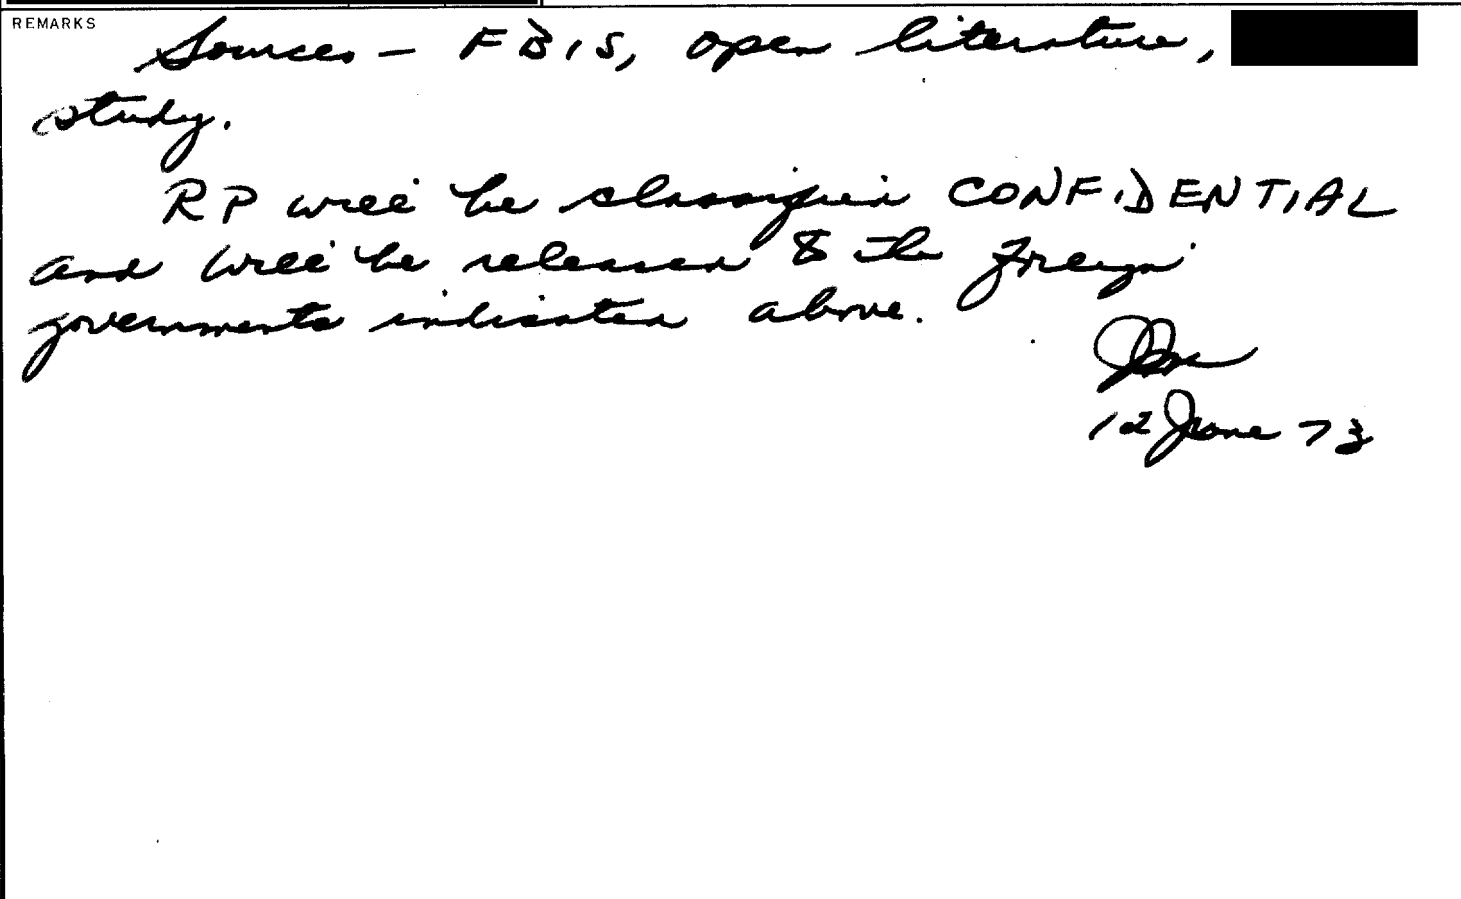 REMARKS
Sources - FBIS, open literature,
study.
RP will be classified CONFIDENTIAL
and will be released to the foreign
governments indicated above.
12 June 73